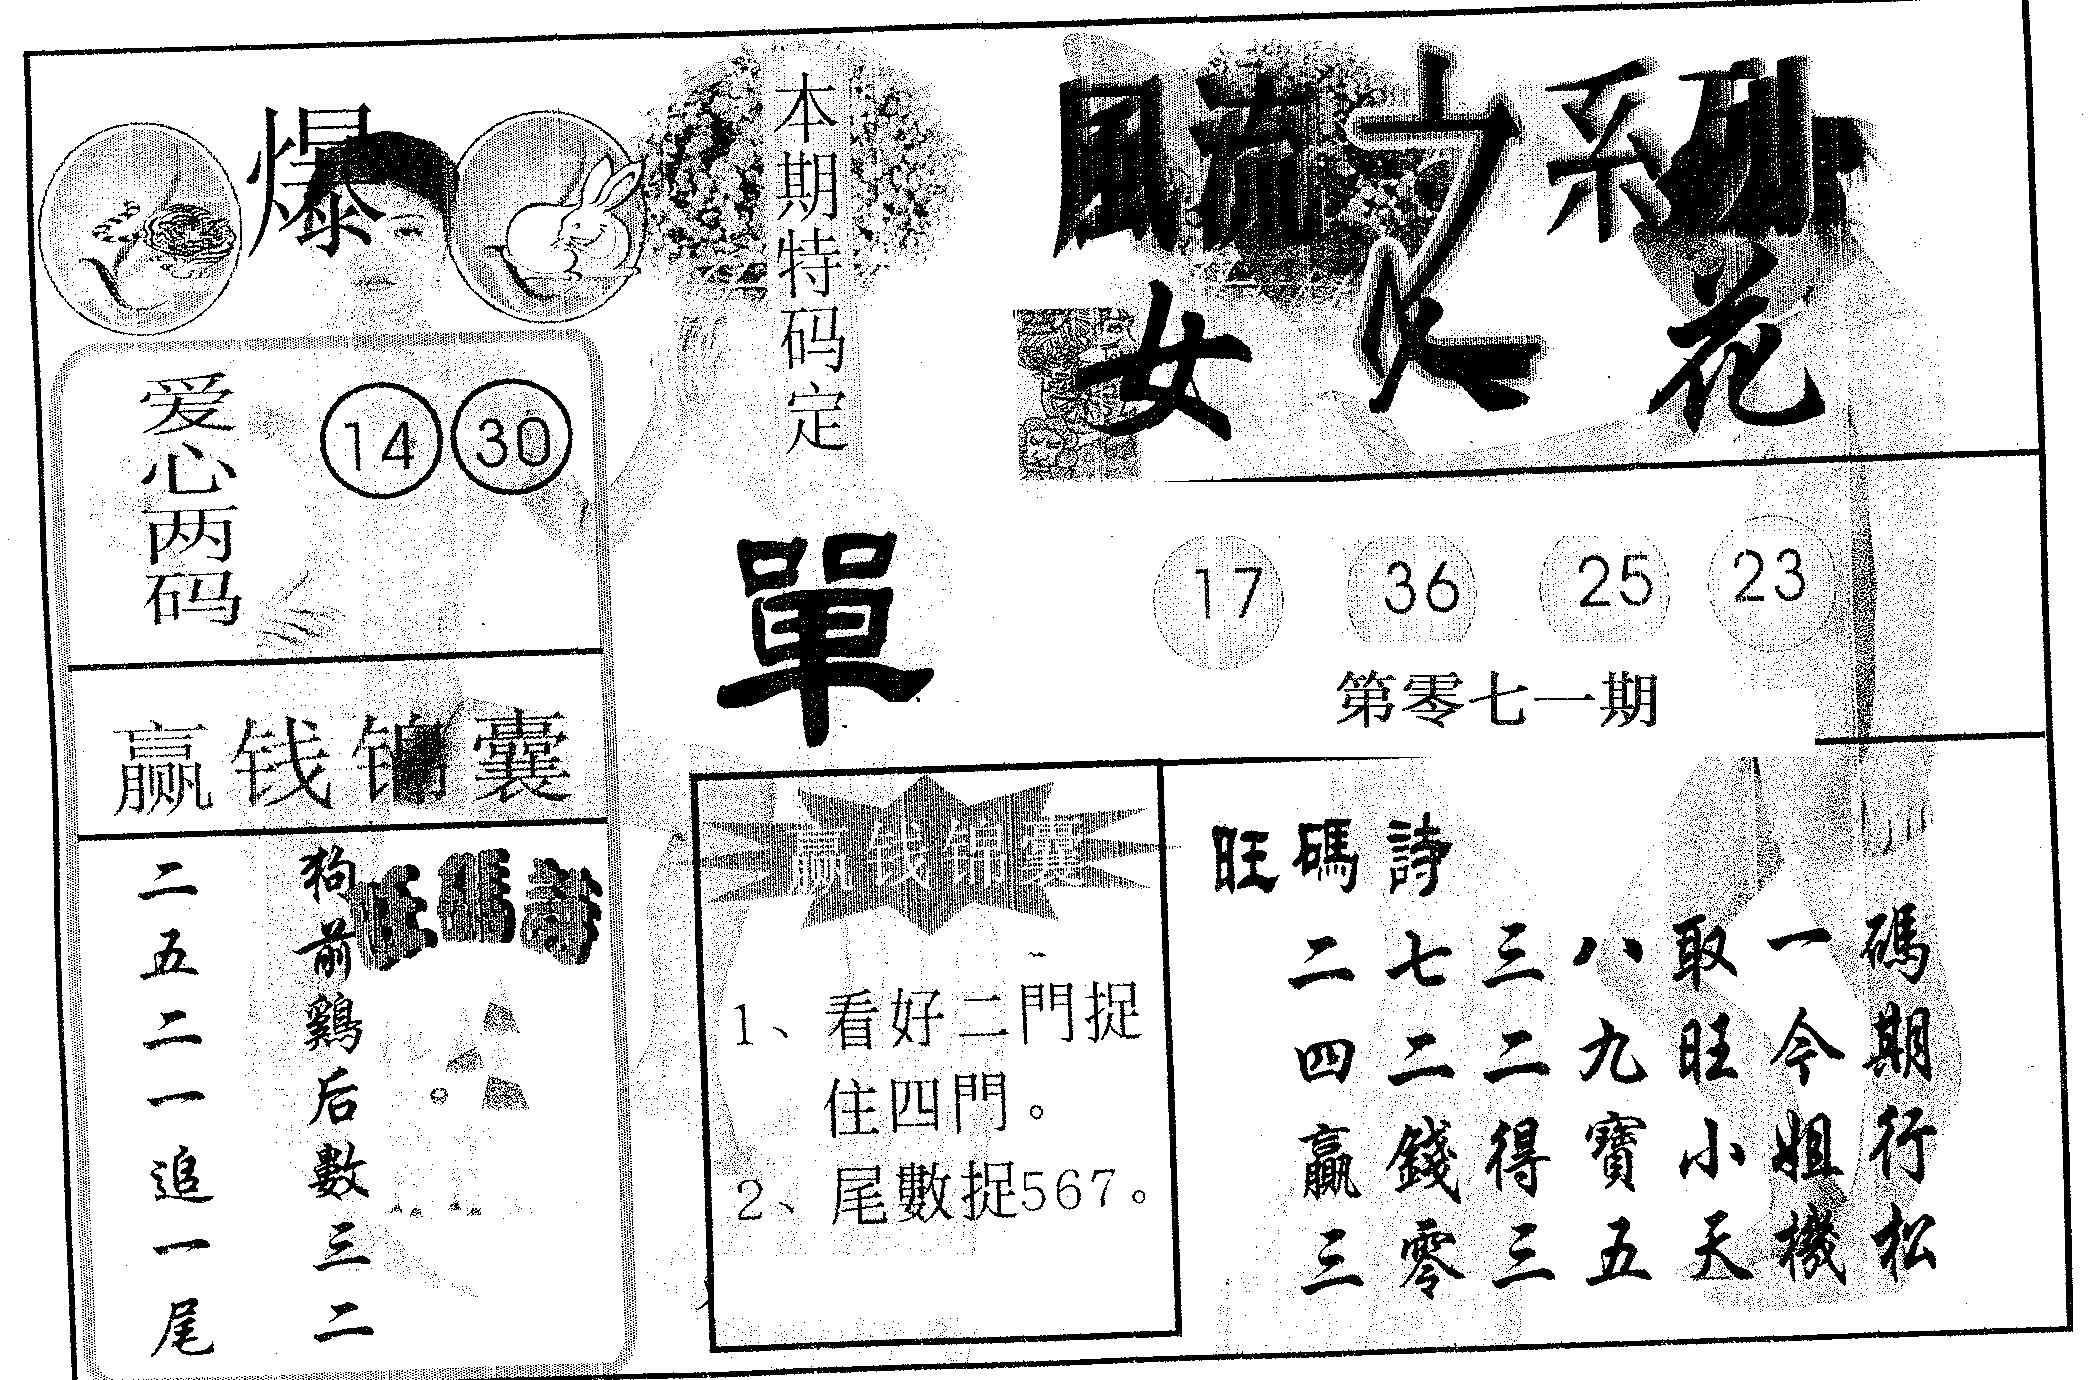 爆
本期特码定
單
風流
女 花
爱心两码
14 30
17 36 25 23
第零七一期
赢钱锦囊
旺碼詩
狗前鷄后數三二
二五二一追一尾
赢钱锦囊
1、看好二門捉
住四門。
2、尾數捉567。
旺碼詩
二七三八取一碼
四二二九旺今期
贏錢得寶小姐行
三零三五天機松